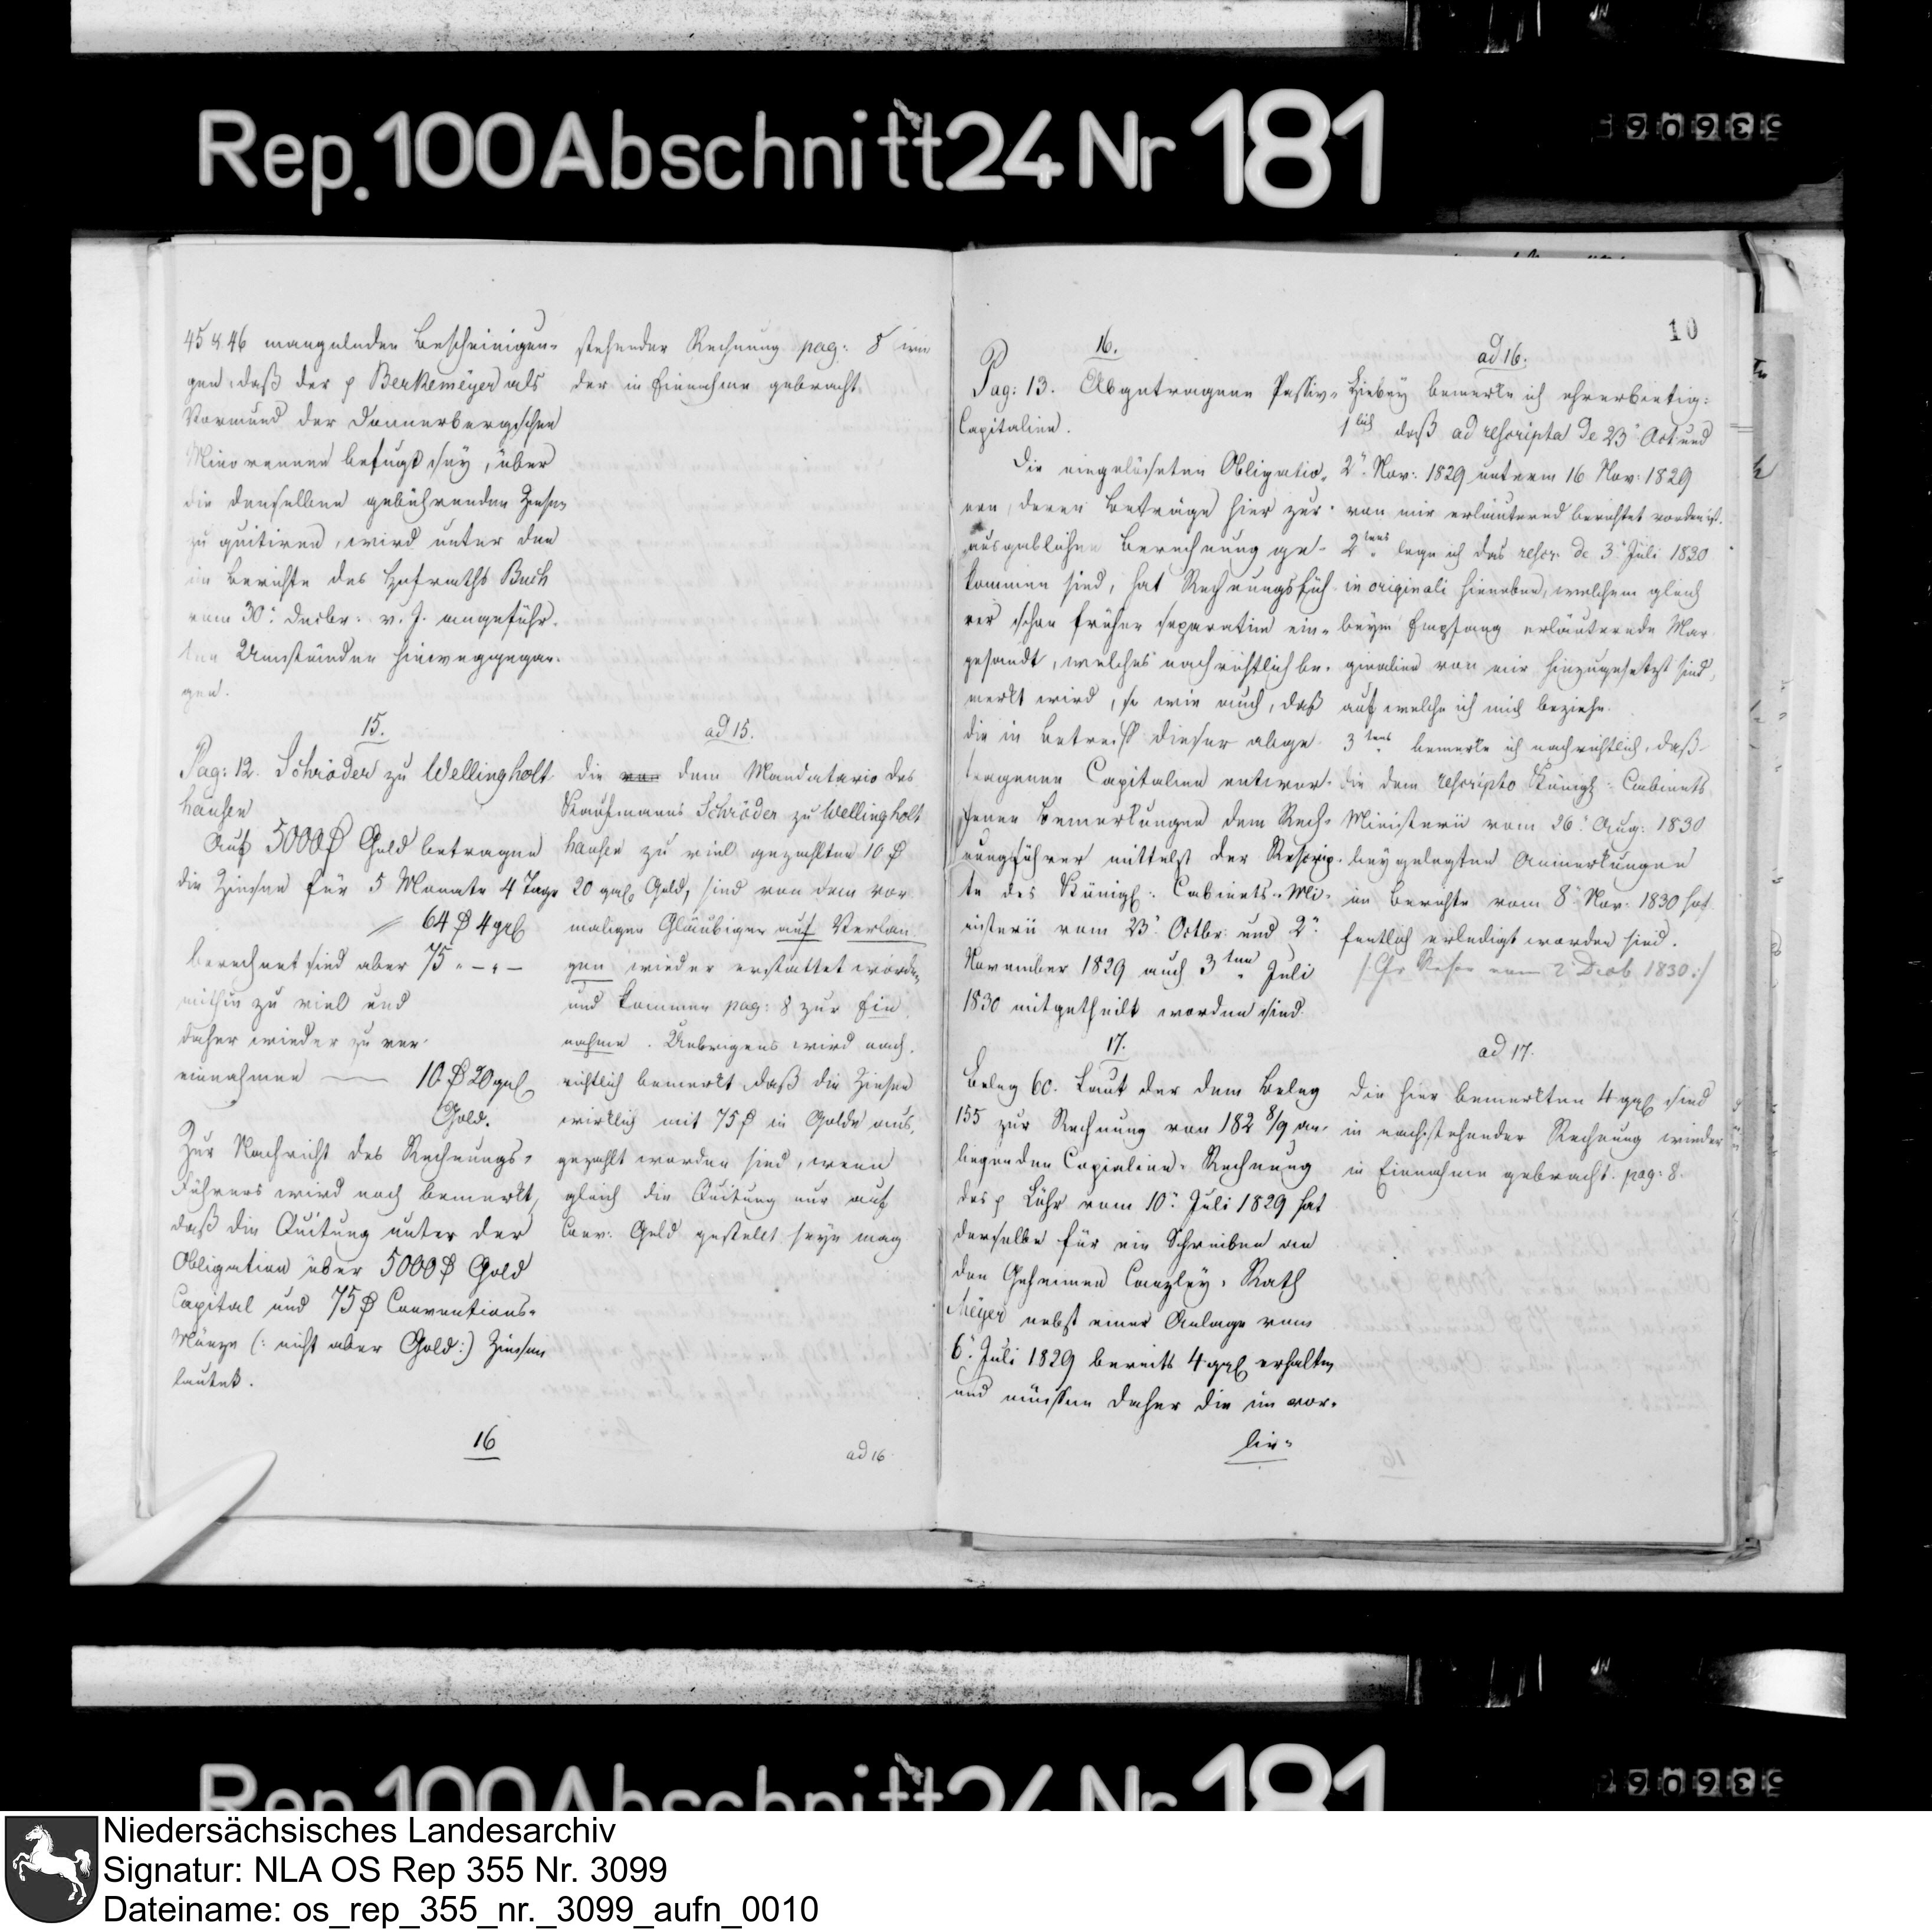 Rep. 100 Abschnitt 24 Nr 181
45 & 46 mangelnden Bescheinigun-
gen, daß der p Berkemeyer als
Vormund der Donnerbergschen
Minorennen befugt sey, über
die denselben gebührenden Zinsen
zu quitiren, wird unter den
im Berichte des Hofraths Buch
vom 30. Decbr. v. J. angeführ-
ten Umständen hinweggegan-
gen.
15.
Pag: 12. Schröder zu Wellingholt-
hausen
Auf 5000 ₰ Gold betragen
die Zinsen für 5 Monate 4 Tage
64 ₰ 4 ggl
berechnet sind aber 75 " — " —
mithin zu viel und
daher wieder zu ver-
einnahmen — 10 ₰ 20 ggl
Gold.
Zur Nachricht des Rechnungs-
führers wird noch bemerkt,
daß die Quitung unter der
Obligation über 5000 ₰ Gold
Capital und 75 ₰ Conventions-
Münze (: nicht aber Gold:) Zinsen
lautet.
16
stehender Rechnung pag: 8 wie
der in Einnahme gebracht.
ad 15.
Die von dem Mandatario des
Kaufmanns Schröder zu Wellingholt
hausen zu viel gezahlten 10 ₰
20 ggl Gold, sind von dem vor-
maligen Gläubiger auf Verlan
gen wieder erstattet worden
und kommen pag: 8 zur Ein
nahme. Uebrigens wird nach-
richtlich bemerkt, daß die Zinsen
wirklich mit 75 ₰ in Golde aus-
gezahlt worden sind, wenn
gleich die Quitung nur auf
Conv: Geld gestellt seyn mag
ad 16
10
16.
Pag: 13. Abgetragene Passiv-
Capitalien.
Die eingelöseten Obligatio-
nen, deren Beträge hier zur
ausgablichen Berechnung ge-
kommen sind, hat Rechnungsfüh-
rer schon früher separatim ein-
gesandt, welches nachrichtlich be-
merkt wird, so wie auch, daß
die in Betreff dieser abge-
tragenen Capitalien entwor-
fenen Bemerkungen dem Rech-
nungsführer mittelst der Rescrip-
te des Königl: Cabinets-Mi-
nisterii vom 23. Octbr. und 2.
November 1829 auch 3ten Juli
1830 mitgetheilt worden sind.
17.
Beleg 60. Laut der dem Beleg
155 zur Rechnung von 182 8/9 an-
liegenden Copialien-Rechnung
des p Lühr vom 10. Juli 1829 hat
derselbe für ein Schreiben an
den Geheimen Canzley-Rath
Meyer nebst einer Anlage vom
6. Juli 1829 bereits 4 ggl erhalten
und müssen daher die im vor-
lie-
ad 16.
Hiebey bemerke ich ehrerbietig:
1lich daß ad rescripta de 23. Oct und
2. Nov: 1829 unterm 16 Nov: 1829
von mir erläuternd berichtet worden ist.
2tens lege ich das rescr. de 3. Juli 1830
in originali hieneben, welchem gleich
beym Empfang erläuternde Mar
ginalien von mir hinzugesetzt sind,
auf welche ich mich beziehe.
3tens bemerke ich nachrichtlich, daß
die dem rescripto Königl: Cabinets
Ministerii vom 26. Aug: 1830
beygelegten Anmerkungen
im Berichte vom 8. Nov. 1830 hof
fentlich erledigt worden sind.
vom 2. Decb. 1830:/
ad 17.
Die hier bemerkten 4 ggl sind
in nachstehender Rechnung wieder
in Einnahme gebracht. pag: 8.
Niedersächsisches Landesarchiv
Signatur: NLA OS Rep 355 Nr. 3099
Dateiname: os_rep_355_nr._3099_aufn_0010